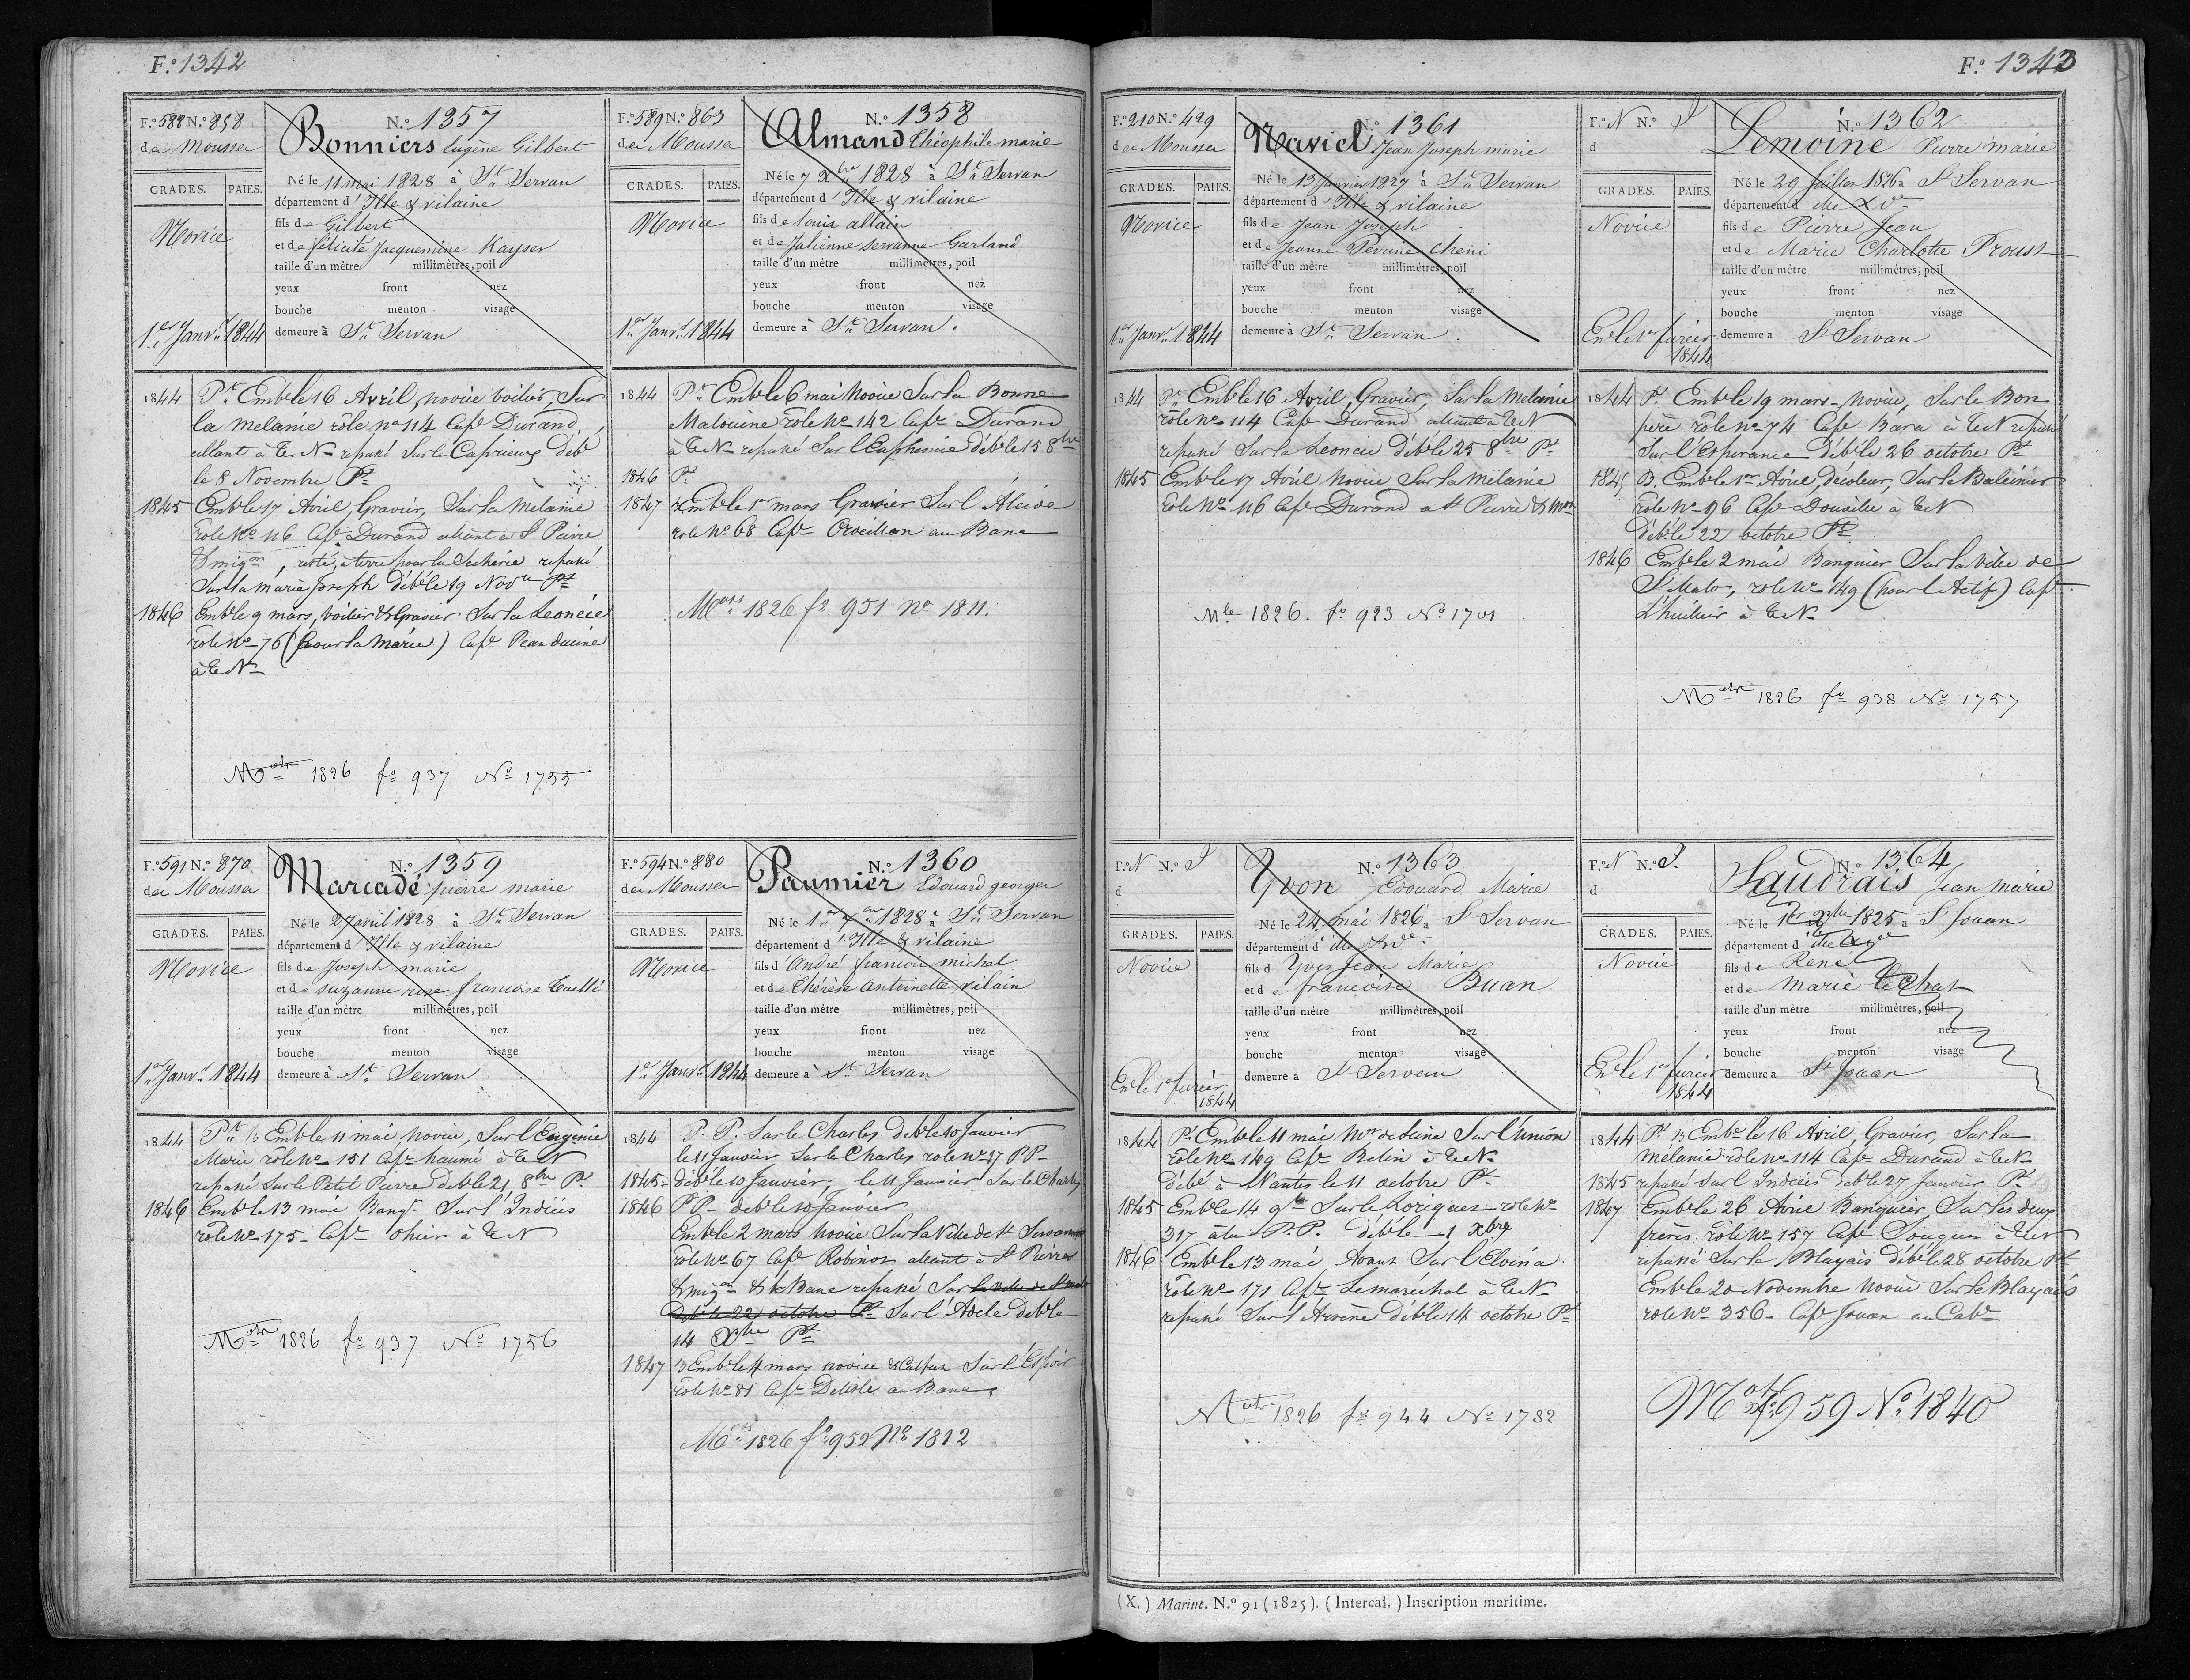 F.º 1342
F.º 588 N.º 858
des Mousses
GRADES. PAIES.
Novice
1er Janv.r 1844
N.º 1357
Bonniers Eugène Gilbert
Né le 11 mai 1828 à St Servan
département d'Ille & vilaine
fils de Gilbert
et de félicité Jacquemine Kayser
taille d'un mètre millimètres, poil
yeux front nez
bouche menton visage
demeure à St Servan
1844 Pt Emb le 16 Avril, novice voilier, Sur
la Mélanie rôle no 114 Cape Durand,
allant à T. N repassé Sur le Capricieux déb
le 8 Novembre Pt
1845 Emb le 17 Avril, Gravier, Sur la Mélanie
rôle No 116 Cape Durand allant à St Pierre
& miqon, resté à terre pour la Sécherie repassé
Sur la marie Joseph déb le 19 Nov Pt
1846 Emb le 9 mars, voilier & Gravier Sur la Léoncie
rôle No 76 (pour la Marie) Cape
à T. N
Mat 1826 fo 937 No 1755
F.º 589 N.º 863
des Mousses
GRADES. PAIES.
Novice
1er Janv.r 1844
N.º 1358
Almand Théophile marie
Né le 7 Xbre 1828 à St Servan
département d'Ille & vilaine
fils de louis allain
et de Julienne servanne Garland
taille d'un mètre millimètres, poil
yeux front nez
bouche menton visage
demeure à St Servan.
1844 Pt Emb le 6 mai Novice Sur la Bonne
Malouine rôle No 142 Cape Durand
à T. N repassé Sur l'Euphémie déb le 15 8bre
1846 Pt
1847 Emb le 1er mars Gravier Sur l'Alcide
role No 68 Cape au Banc
Mat 1826 fo 951 no 1811.
F.º 591 N.º 870
des Mousses
GRADES. PAIES.
Novice
1er Janv.r 1844
N.º 1359
Marcadé pierre marie
Né le 27 avril 1828 à St Servan
département d'Ille & vilaine
fils de Joseph marie
et de suzanne rose francoise Taillé
taille d'un mètre millimètres, poil
yeux front nez
bouche menton visage
demeure à St Servan
1844 Pt B Emb le 11 mai, novice, Sur l'Eugénie
Marie rôle No 151 Cape haumé à T. N
repassé Sur le Petit Pierre déb le 21 8bre Pt
1846 Emb le 13 mai Banqr Sur l'Indécis
rôle No 175 Cape ohier à T. N
Mat 1826 fo 937 No 1756
F.º 594 N.º 880
des Mousses
GRADES. PAIES.
Novice
1er Janv.r 1844
N.º 1360
Paumier Edouard georges
Né le 1er 1828 à St Servan
département d'Ille & vilaine
fils d'André francois michel
et de Thérèse Antoinette vilain
taille d'un mètre millimètres, poil
yeux front nez
bouche menton visage
demeure à St Servan
1844 P. P. Sur le Charles deb le 10 Janvier
le 11 Janvier Sur le Charles role No 37 P.P.
1845 déb le 10 Janvier, le 11 Janvier Sur le Charles
1846 P.P. deb le 10 Janvier
Emb le 2 mars novice Sur la Ville de St Servan
rôle No 67 Cape Robinot allant à St Pierre
& miqon & le Banc repassé Sur la ville de St malo
Deb le 22 octobre Pt Sur l'Adele deb le
14 Xbre Pt
1847 B Emb le 4 mars novice & Calfat Sur l'Espoir
rôle No 81 Cape Delisle au Banc
Mat 1826 fo 952 No 1812
F.º 1343
F.º 210 N.º 429
des Mousses
GRADES. PAIES.
Novice
1er Janv.r 1844
N.º 1361
Naviel Jean Joseph marie
Né le 13 Janvier 1827 à St Servan
département d'Ille & vilaine
fils de Jean Joseph
et de Jeanne Perrine Cheni
taille d'un mètre millimètres, poil
yeux front nez
bouche menton visage
demeure à St Servan.
1844 Pt Emb le 16 Avril, Gravier, Sur la Mélanie
rôle No 114 Cape Durand allant à T. N
repassé Sur la Léoncie déb le 25 8bre Pt
1845 Emb le 17 Avril novice Sur la Mélanie
rôle No 116 Cape Durand à St Pierre & Mon
Mle 1826. fo 923 No 1701
F.º N N.º J
d
GRADES. PAIES.
Novice
En le 1er févrer
1844
N.º 1362
Lemoine Pierre marie
Né le 29 Juillet 1826 à St Servan
département d'ille & Ve
fils de Pierre Jean
et de Marie Charlotte Proust
taille d'un mètre millimètres, poil
yeux front nez
bouche menton visage
demeure a St Servan
1844 Pt Emb le 19 mars, Novice, Sur le Bon
père rôle No 74 Cape Bara à T. N repassé
Sur l'Espérance déb le 26 octobre Pt
1845 B. Emb le 1er Avril, décoleur, Sur le Baleinier
rôle No 96 Cape Douville à T. N
déb le 22 octobre Pt
1846 Emb le 2 mai Banquier Sur la Ville de
St Malo, role No 149 (pour l'Actif) Cape
L'huilier à T. N
Mat 1826 fo 938 No 1757
F.º N N.º J
d
GRADES. PAIES.
Novice
En le 1er févrer
1844
N.º 1363
Yvon Edouard Marie
Né le 24 mai 1826 a St Servan
département d'ille & Ve
fils d Yves Jean Marie
et de francoise Buan
taille d'un mètre millimètres, poil
yeux front nez
bouche menton visage
demeure a St Servan
1844 Pt Emb le 11 mai Mre de Seine Sur l'Union
rôle No 149 Cape Belin à T. N
débé à Nantes le 11 octobre Pt
1845 Emb le 14 9bre Sur le rôle No
317 P.P. déb le 1 Xbre
1846 Emb le 13 mai, Avant Sur l'Elvina
rôle No 171 Cape Lemaréchal à T. N
repassé Sur l'Aurène déb le 14 octobre Pt
Mat 1826 fo 944 No 1782
F.º N N.º J.
d
GRADES. PAIES.
Novice
En le 1er févrer
1844
N.º 1364
Saudrais Jean Marie
Né le 1er Xbre 1825 a St Jouan
département d'ille & Ve
fils de René
et de Marie Le Chat
taille d'un mètre millimètres, poil
yeux front nez
bouche menton visage
demeure a St Jouan
1844 Pt B Emb le 16 Avril, Gravier, Sur la
Mélanie rôle No 114 Cape Durand à T. N
1845 repassé Sur l'Indécis deb le 27 Janvier Pt
1847 Emb le 26 Avril Banquier, Sur les deux
frères rôle No 157 Cape à T. N
repassé Sur le Blayais déb le 28 octobre Pt
Emb le 20 Novembre novice Sur le Blayais
role No 356 Cape Jouan au Cabe
Mat fo 959 No 1840
(X.) Marine. N.º 91 (1825). (Intercal.) Inscription maritime.